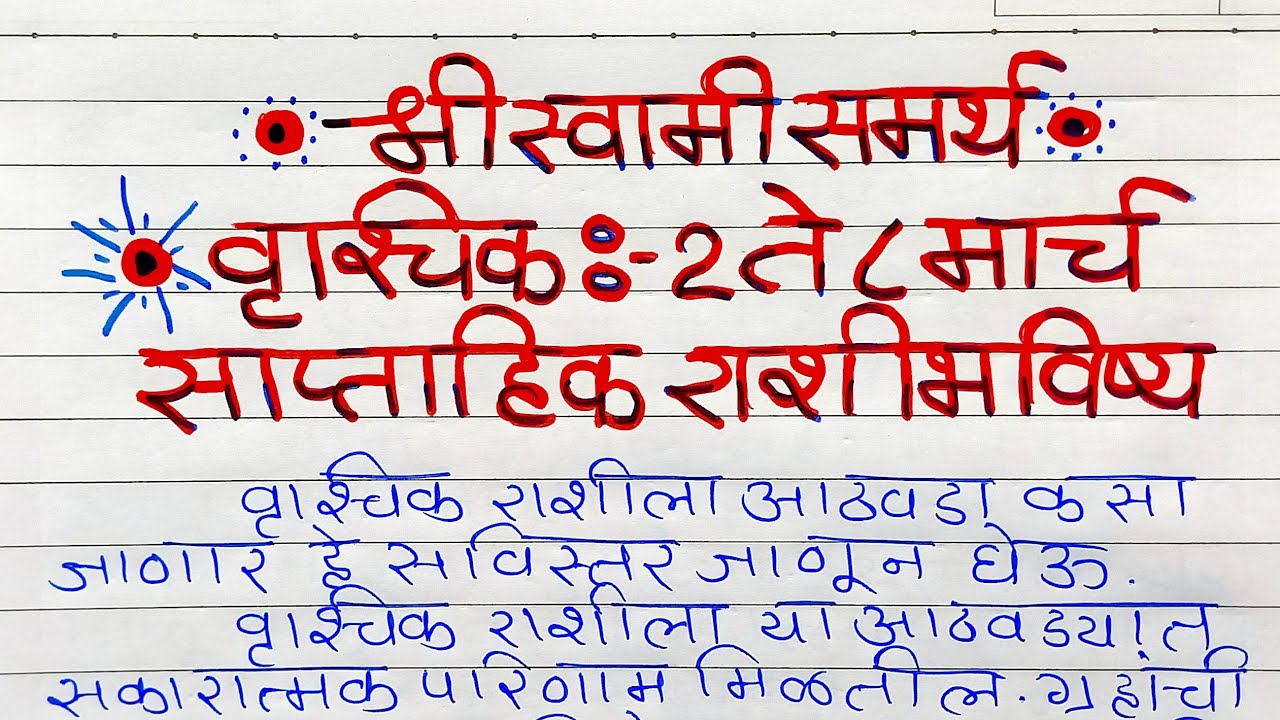 श्री स्वामी समर्थ
वृश्चिक :- 2 ते ८ मार्च
साप्ताहिक राशीभविष्य
वृश्चिक राशीला आठवडा कसा
जाणार हे सविस्तर जाणून घेऊ.
वृश्चिक राशीला या आठवडयात
सकारात्मक परिणाम मिळतील. ग्रहांची